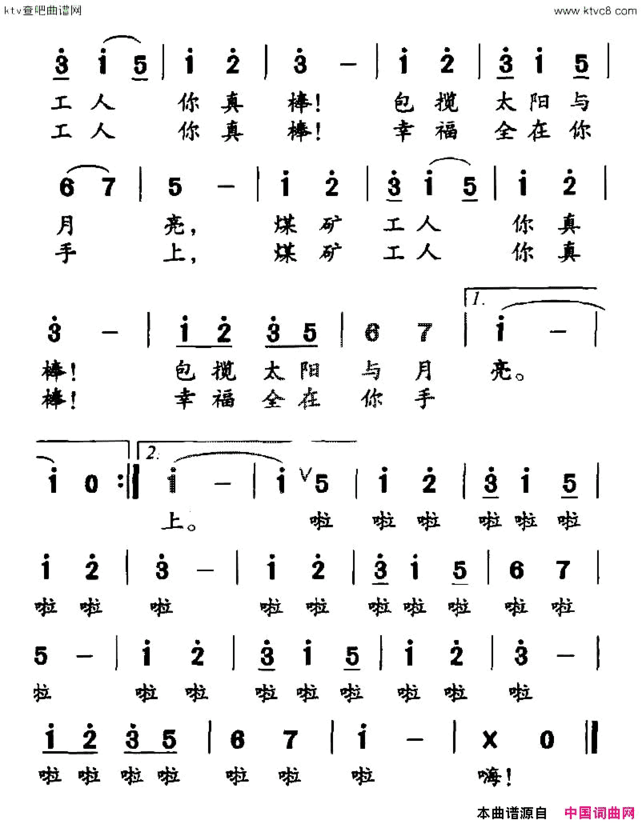 ktv查吧曲谱网 www.ktvc8.com
3 i 5 | i 2 | 3 – | i 2 | 3 i 5 |
工人 你真 棒! 包揽 太阳与
工人 你真 棒! 幸福 全在你
6 7 | 5 – | i 2 | 3 i 5 | i 2 |
月 亮, 煤矿 工人 你真
手 上, 煤矿 工人 你真
1.
3 – | i 2 3 5 | 6 7 | i – |
棒! 包揽太阳 与月 亮。
棒! 幸福全在 你手
2.
i 0 :| i – | i ∨ 5 | i 2 | 3 i 5 |
上。 啦 啦啦 啦啦啦
i 2 | 3 – | i 2 | 3 i 5 | 6 7 |
啦啦 啦 啦啦 啦啦啦 啦啦
5 – | i 2 | 3 i 5 | i 2 | 3 – |
啦 啦啦 啦啦啦 啦啦 啦
i 2 3 5 | 6 7 | i – | X 0 ‖
啦啦啦啦 啦啦 啦 嗨!
本曲谱源自 中国词曲网